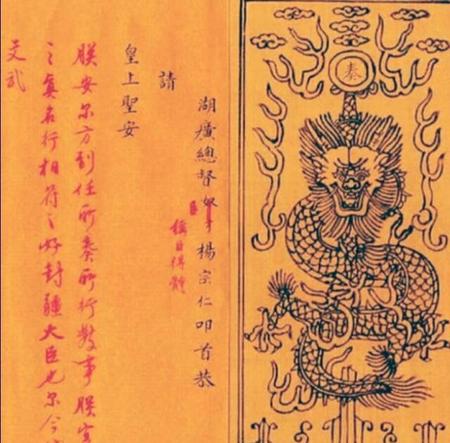 奏
湖廣總督奴才楊宗仁叩首恭
臣
稱臣得體
請
皇上聖安
朕安尔方到任所奏所行數事朕
之真名行相符之好封疆大臣也尔今
文武